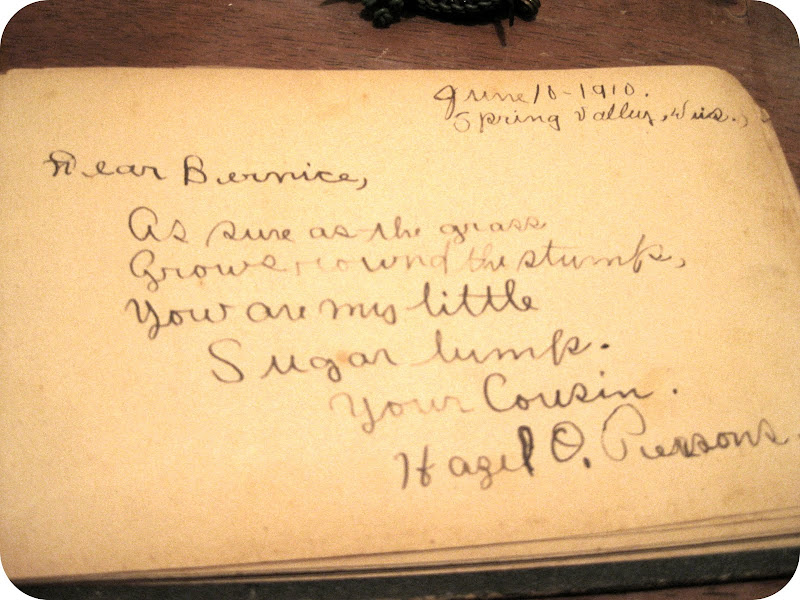 June 10-1910.
Spring Valley, Wis.,
Dear Bernice,
As sure as the grass
Grows round the stump,
You are my little
Sugar lump.
Your Cousin.
Hazel O. Piersons.